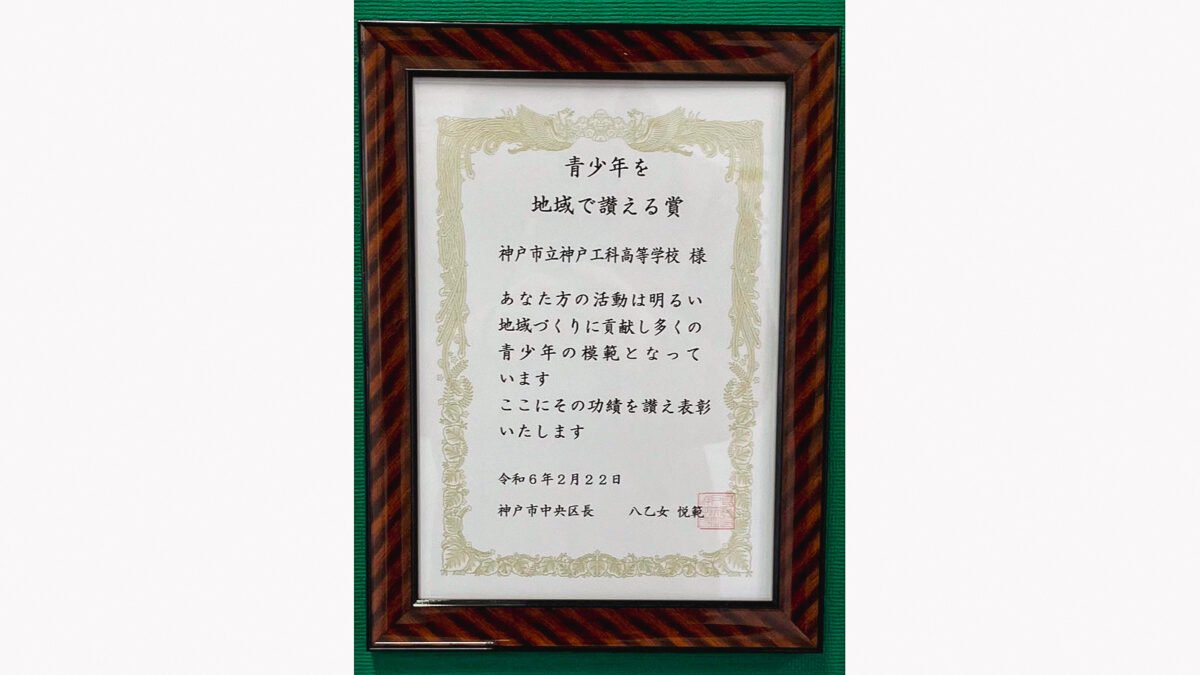 青少年を
地域で讃える賞
神戸市立神戸工科高等学校 様
あなた方の活動は明るい
地域づくりに貢献し多くの
青少年の模範となって
います
ここにその功績を讃え表彰
いたします
令和６年２月２２日
神戸市中央区長 八乙女 悦範